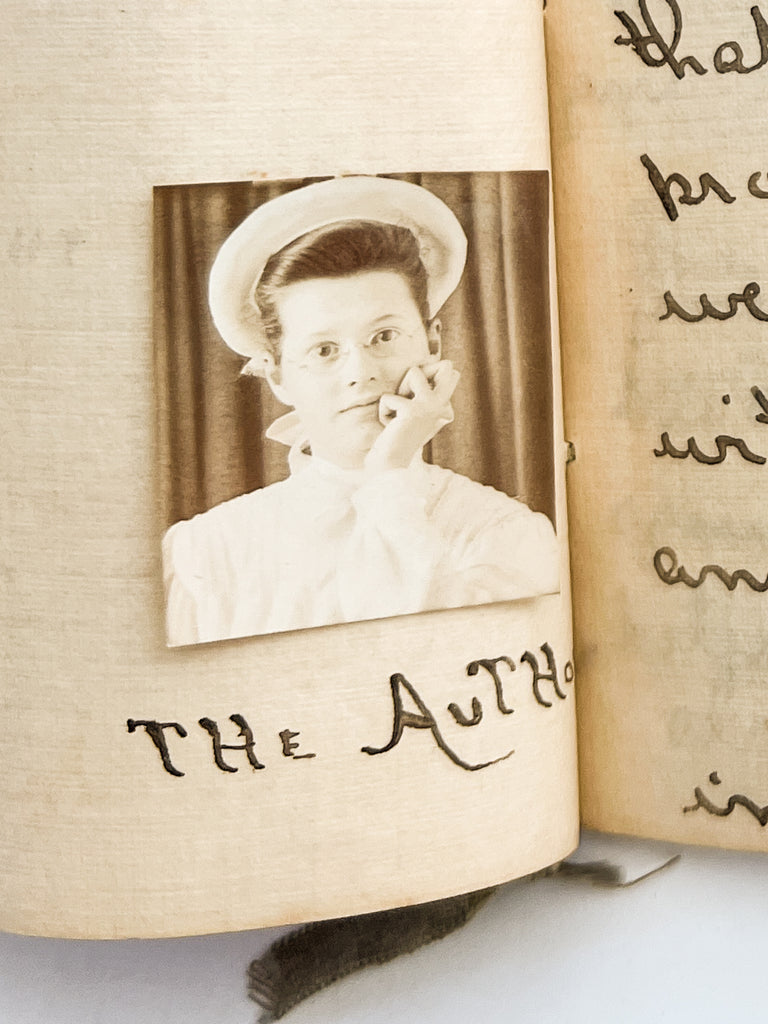 THE AUTHO
tha
pro
we
wit
an
in